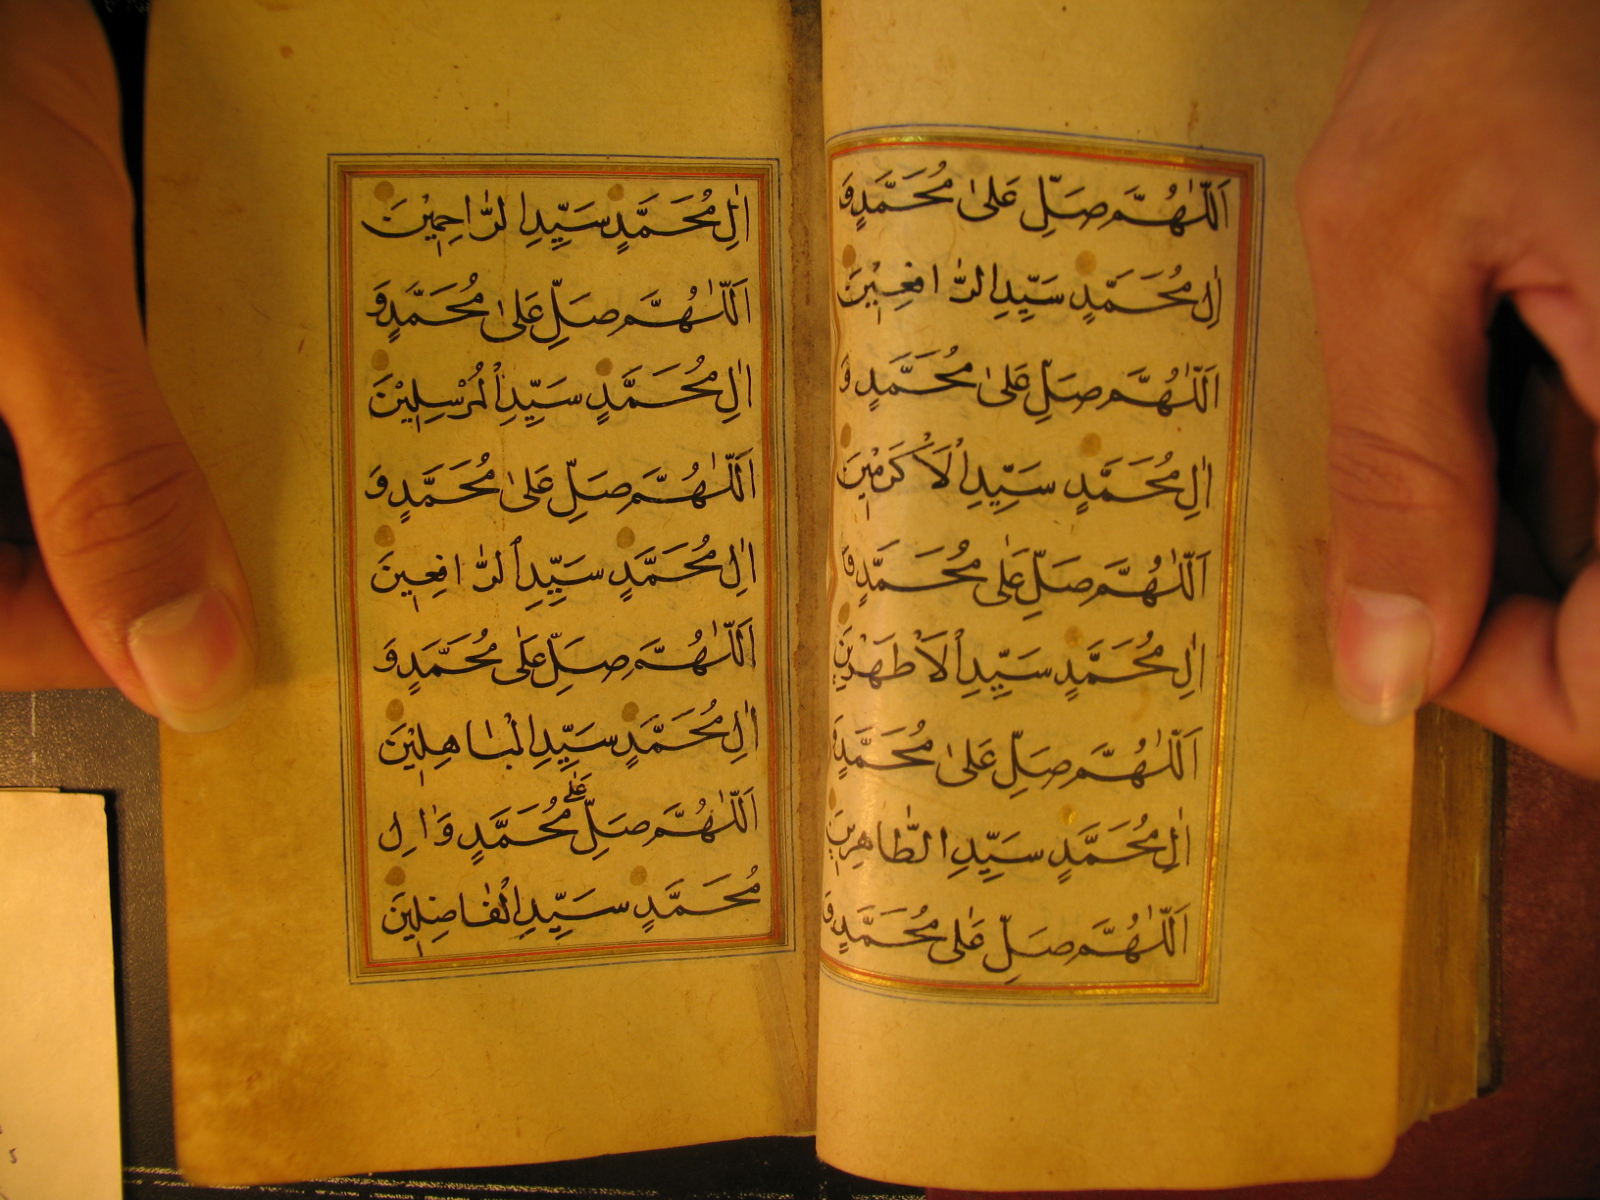 اَللّٰهُمَّ صَلِّ عَلىٰ مُحَمَّدٍ وَ
اٰلِ مُحَمَّدٍ سَيِّدِ الرّٰافِعِيْنَ
اَللّٰهُمَّ صَلِّ عَلىٰ مُحَمَّدٍ وَ
اٰلِ مُحَمَّدٍ سَيِّدِ الْاَكْرَمِيْنَ
اَللّٰهُمَّ صَلِّ عَلىٰ مُحَمَّدٍ وَ
اٰلِ مُحَمَّدٍ سَيِّدِ الْاَطْهَرِيْنَ
اَللّٰهُمَّ صَلِّ عَلىٰ مُحَمَّدٍ وَ
اٰلِ مُحَمَّدٍ سَيِّدِ الطّٰاهِرِيْنَ
اَللّٰهُمَّ صَلِّ عَلىٰ مُحَمَّدٍ وَ
اٰلِ مُحَمَّدٍ سَيِّدِ الرّٰاحِمِيْنَ
اَللّٰهُمَّ صَلِّ عَلىٰ مُحَمَّدٍ وَ
اٰلِ مُحَمَّدٍ سَيِّدِ الْمُرْسِلِيْنَ
اَللّٰهُمَّ صَلِّ عَلىٰ مُحَمَّدٍ وَ
اٰلِ مُحَمَّدٍ سَيِّدِ الرّٰافِعِينَ
اَللّٰهُمَّ صَلِّ عَلىٰ مُحَمَّدٍ وَ
اٰلِ مُحَمَّدٍ سَيِّدِ الْبٰاهِلِيْنَ
اَللّٰهُمَّ صَلِّ عَلٰى مُحَمَّدٍ وَاٰلِ
مُحَمَّدٍ سَيِّدِ الْفٰاضِلِيْنَ